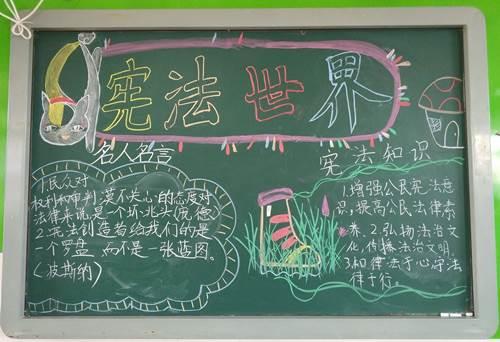 宪法世界
名人名言
1.民众对
权利和审判漠不关心的态度对
法律来说是一个坏兆头(庞德)
2.宪法创造者给我们的是
一个罗盘,而不是一张蓝图。
(波斯纳)
宪法知识
1.增强公民宪法意
识,提高公民法律素
养.2.弘扬法治文
化,传播法治文明.
3.和律法于心守法
律于行.